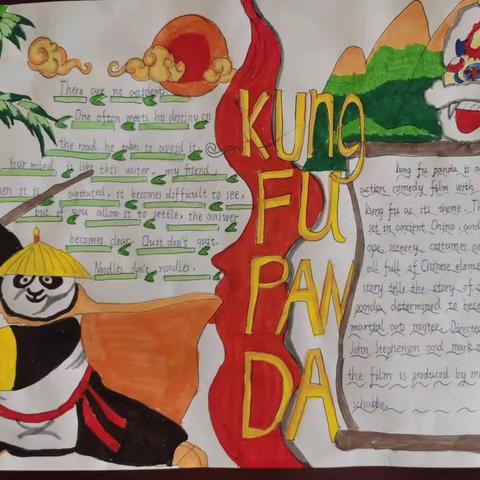 There are no accidents
One often meets his destiny on
the road he takes to avoid it.
Your mind is like this water, my friend,
when it is agitated, it becomes difficult to see,
but if you allow it to settle, the answer
becomes clear. Quit don't quit.
Noodles don't noodles.
KUNG
FU
PAN
DA
Kung fu panda is a
action comedy film with
kung fu as its theme. Th
set in ancient China, and
scenery costumes an
all full of Chinese eleme
story tells the story of a
panda determined to beco
martial arts master. Directed
John Stephenson and mark o
the film is produced by m